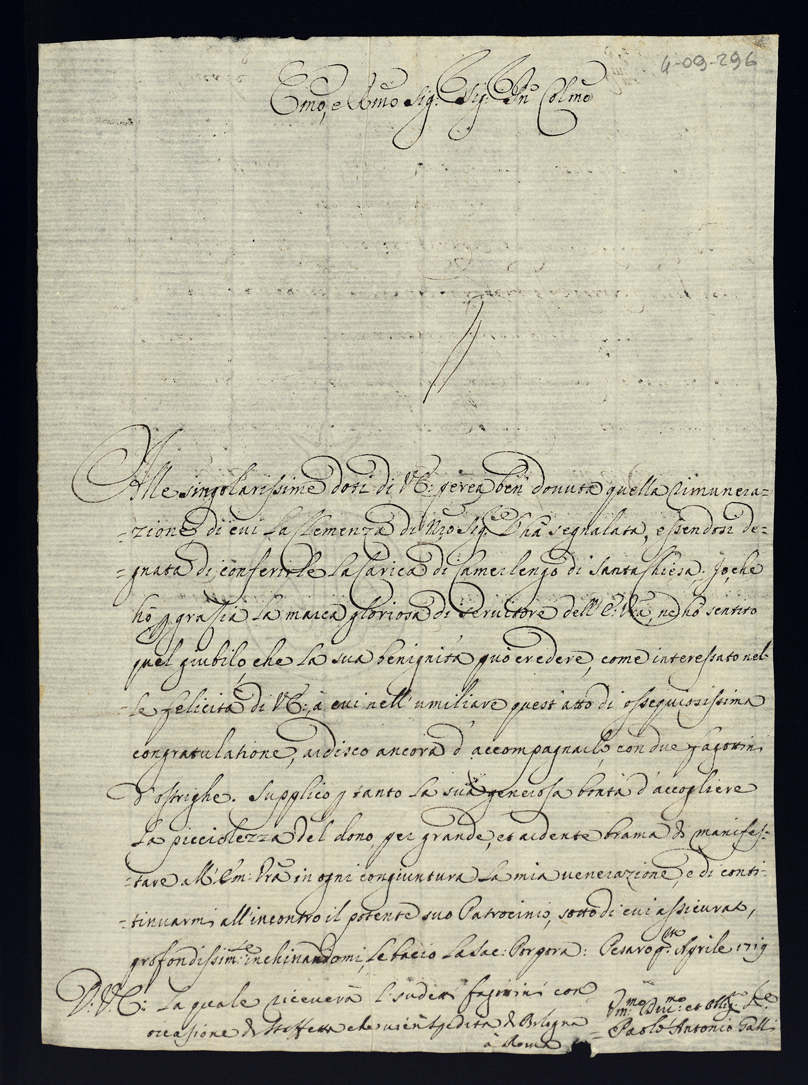 4-09-296
Emo, e Rmo Sig: Sig: Pñe Colmo
Alle singolarissime doti di V.E: s'erea ben douuta quella rimunera=
=zione, di cui la Clemenza di Nro Sig:re l'ha segnalata, essendosi de=
=gnata di conferirle la Carica di Camerlengo di Santa Chiesa. Io, che
hò p grasia la marca gloriosa di seruitore dell'E: Vra, ne hò sentito
quel giubilo, che la sua benignità può credere, come interessato nel=
=le felicità di V.E:, à cui nell'umiliare quest'atto di ossequiosissima
congratulatione, ardisco ancora d'accompagnarlo con due fagottini
d'ostrighe. Supplico p tanto la sua generosa bontà d'accogliere
la picciolezza del dono, per grande, et ardente brama di manifes=
=tare all'Em: Vrã in ogni congiuntura la mia venerazione, e di conti=
=tinuarmi all'incontro il potente suo Patrocinio, sotto di cui assicurat,
profondissim:te inchinandomi, le bacio la Sac: Porpora: Pesaro p:mo Aprile 1719
D: V.E: La quale riceverà l: sudetti fagottini con
occasione di Staffetta che uien spedita di Bologna
à Roma
Um:mo Diu:mo et Oblig: Se:
= Paolo Antonio Galli